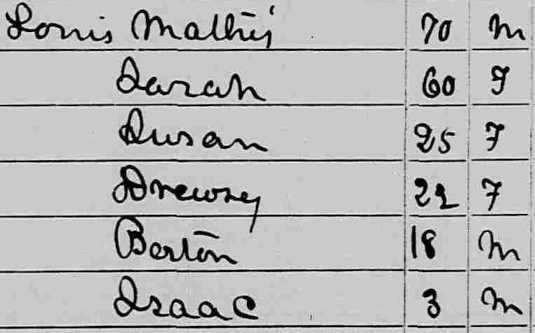 Louis Mathis 70 M
Sarah 60 F
Susan 25 F
Drewsy 22 F
Barton 18 M
Isaac 3 M